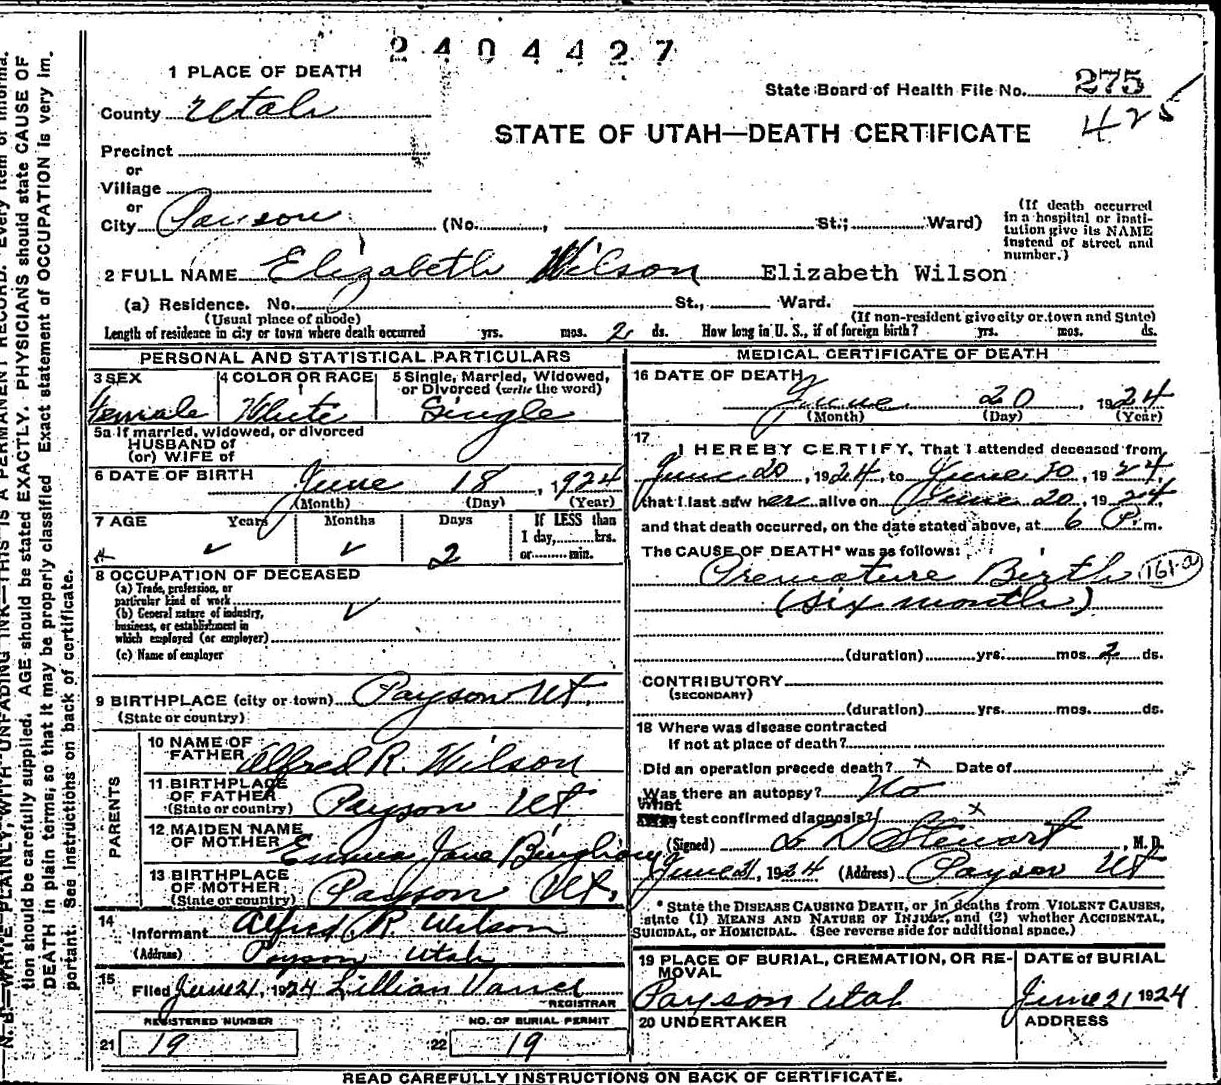 2404427
1 PLACE OF DEATH
County Utah
State Board of Health File No. 275
425
STATE OF UTAH—DEATH CERTIFICATE
Precinct
or
Village
or
City Payson (No. , St.; Ward)
(If death occurred in a hospital or insti-
tution give its NAME
instead of street and
number.)
2 FULL NAME Elizabeth Wilson Elizabeth Wilson
(a) Residence. No. St., Ward.
(Usual place of abode) (If non-resident give city or town and State)
Length of residence in city or town where death occurred yrs. mos. 2 ds. How long in U. S., if of foreign birth? yrs. mos. ds.
PERSONAL AND STATISTICAL PARTICULARS
3 SEX 4 COLOR OR RACE 5 Single, Married, Widowed,
or Divorced (write the word)
Female White Single
5a If married, widowed, or divorced
HUSBAND of
(or) WIFE of
6 DATE OF BIRTH June 18, 1924
(Month) (Day) (Year)
7 AGE Years Months Days If LESS than
1 day, hrs.
or min.
✓ ✓ 2
8 OCCUPATION OF DECEASED
(a) Trade, profession, or
particular kind of work ✓
(b) General nature of industry,
business, or establishment in
which employed (or employer)
(c) Name of employer
9 BIRTHPLACE (city or town) Payson Ut.
(State or country)
PARENTS
10 NAME OF
FATHER Alfred R. Wilson
11 BIRTHPLACE
OF FATHER Payson Ut
(State or country)
12 MAIDEN NAME
OF MOTHER Emma Jane Bingham
13 BIRTHPLACE
OF MOTHER Payson Ut.
(State or country)
14
Informant Alfred R. Wilson
(Address) Payson Utah
15
Filed June 21, 1924 Lillian
REGISTRAR
REGISTERED NUMBER NO. OF BURIAL PERMIT
21 19 22 19
MEDICAL CERTIFICATE OF DEATH
16 DATE OF DEATH
June 20, 1924
(Month) (Day) (Year)
17
I HEREBY CERTIFY, That I attended deceased from
June 20, 1924, to June 20, 1924,
that I last saw her alive on June 20, 1924
and that death occurred, on the date stated above, at 6 P. m.
The CAUSE OF DEATH* was as follows:
Premature Birth 161-a
(six month)
(duration) yrs. mos. 2 ds.
CONTRIBUTORY
(SECONDARY)
(duration) yrs. mos. ds.
18 Where was disease contracted
if not at place of death?
Did an operation precede death? x Date of
Was there an autopsy? No
What test confirmed diagnosis? x
(Signed) L D Stewart, M. D.
June 21, 1924 (Address) Payson Ut
* State the DISEASE CAUSING DEATH, or in deaths from VIOLENT CAUSES,
state (1) MEANS AND NATURE OF INJURY, and (2) whether ACCIDENTAL,
SUICIDAL, or HOMICIDAL. (See reverse side for additional space.)
19 PLACE OF BURIAL, CREMATION, OR RE-
MOVAL DATE of BURIAL
Payson Utah June 21 1924
20 UNDERTAKER ADDRESS
READ CAREFULLY INSTRUCTIONS ON BACK OF CERTIFICATE.
N. B.—WRITE PLAINLY, WITH UNFADING INK—THIS IS A PERMANENT RECORD. Every item of informa-
tion should be carefully supplied. AGE should be stated EXACTLY. PHYSICIANS should state CAUSE OF
DEATH in plain terms, so that it may be properly classified. Exact statement of OCCUPATION is very im-
portant. See instructions on back of certificate.